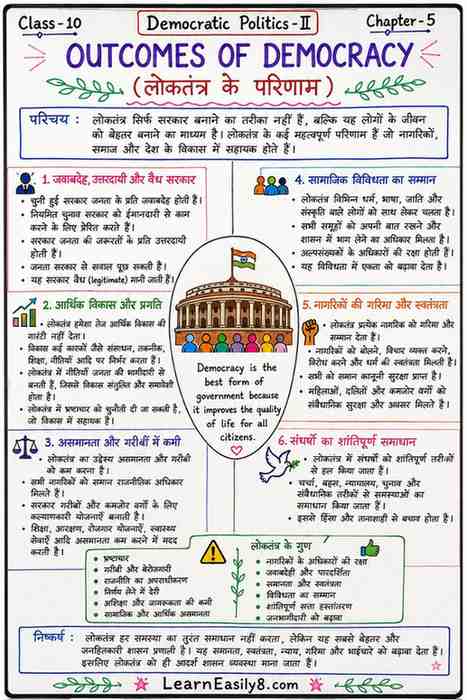 Class-10
Democratic Politics-II
Chapter-5
OUTCOMES OF DEMOCRACY
(लोकतंत्र के परिणाम)
परिचय : लोकतंत्र सिर्फ सरकार बनाने का तरीका नहीं हैं, बल्कि यह लोगों के जीवन
को बेहतर बनाने का माध्यम है। लोकतंत्र के कई महत्वपूर्ण परिणाम हैं जो नागरिकों,
समाज और देश के विकास में सहायक होते हैं।
1. जवाबदेह, उत्तरदायी और वैध सरकार
• चुनी हुई सरकार जनता के प्रति जवाबदेह होती है।
• नियमित चुनाव सरकार को ईमानदारी से काम
करने के लिए प्रेरित करते हैं।
• सरकार जनता की जरूरतों के प्रति उत्तरदायी
होती हैं।
• जनता सरकार से सवाल पूछ सकती है।
• यह सरकार वैध (legitimate) मानी जाती हैं।
2. आर्थिक विकास और प्रगति
• लोकतंत्र हमेशा तेज आर्थिक विकास की
गारंटी नहीं देता।
• विकास कई कारकों जैसे संसाधन, तकनीक,
शिक्षा, नीतियों आदि पर निर्भर करता हैं।
• लोकतंत्र में नीतियाँ जनता की भागीदारी से
बनती हैं, जिससे विकास संतुलित और समावेशी
होता है।
• लोकतंत्र में भ्रष्टाचार को चुनौती दी जा सकती है,
जो विकास में सहायक है।
3. असमानता और गरीबी में कमी
• लोकतंत्र का उद्देश्य असमानता और गरीबी
को कम करना है।
• सभी नागरिकों को समान राजनीतिक अधिकार
मिलते हैं।
• सरकार गरीबों और कमजोर वर्गों के लिए
कल्याणकारी योजनाएँ बनाती है।
• शिक्षा, आरक्षण, रोजगार योजनाएँ, स्वास्थ्य
सेवाएँ आदि असमानता कम करने में मदद
करती है।
Democracy is the
best form of
government because
it improves the quality
of life for all
citizens.
4. सामाजिक विविधता का सम्मान
• लोकतंत्र विभिन्न धर्म, भाषा, जाति और
संस्कृति वाले लोगों को साथ लेकर चलता है।
• सभी समूहों को अपनी बात रखने और
शासन में भाग लेने का अधिकार मिलता है।
• अल्पसंख्यकों के अधिकारों की रक्षा होती हैं।
• यह विविधता में एकता को बढ़ावा देता है।
5. नागरिकों की गरिमा और स्वतंत्रता
• लोकतंत्र प्रत्येक नागरिक को गरिमा और
सम्मान देता हैं।
• नागरिकों को बोलने, विचार व्यक्त करने,
विरोध करने और धर्म की स्वतंत्रता मिलती है।
• सभी को समान कानूनी सुरक्षा प्राप्त है।
• महिलाओं, दलितों और कमजोर वर्गों को
संवैधानिक सुरक्षा और अवसर मिलते है।
6. संघर्षों का शांतिपूर्ण समाधान
• लोकतंत्र में संघर्षों को शांतिपूर्ण तरीकों
से हल किया जाता हैं।
• चर्चा, बहस, न्यायालय, चुनाव और
संवैधानिक तरीकों से समस्याओं का
समाधान किया जाता हैं।
• इससे हिंसा और तानाशाही से बचाव होता है।
• भ्रष्टाचार
• गरीबी और बेरोजगारी
• राजनीति का अपराधीकरण
• निर्णय लेने में देरी
• अशिक्षा और जागरूकता की कमी
• सामाजिक और आर्थिक असमानता
लोकतंत्र के गुण
• नागरिकों के अधिकारों की रक्षा
• जवाबदेही और पारदर्शिता
• समानता और स्वतंत्रता
• विविधता का सम्मान
• शांतिपूर्ण सत्ता हस्तांतरण
• जनभागीदारी को बढ़ावा
निष्कर्ष : लोकतंत्र हर समस्या का तुरंत समाधान नहीं करता, लेकिन यह सबसे बेहतर और
जनहितकारी शासन प्रणाली है। यह समानता, स्वतंत्रता, न्याय, गरिमा और भाईचारे को बढ़ावा देता हैं।
इसलिए लोकतंत्र को ही आदर्श शासन व्यवस्था माना जाता हैं।
LearnEasily8.com